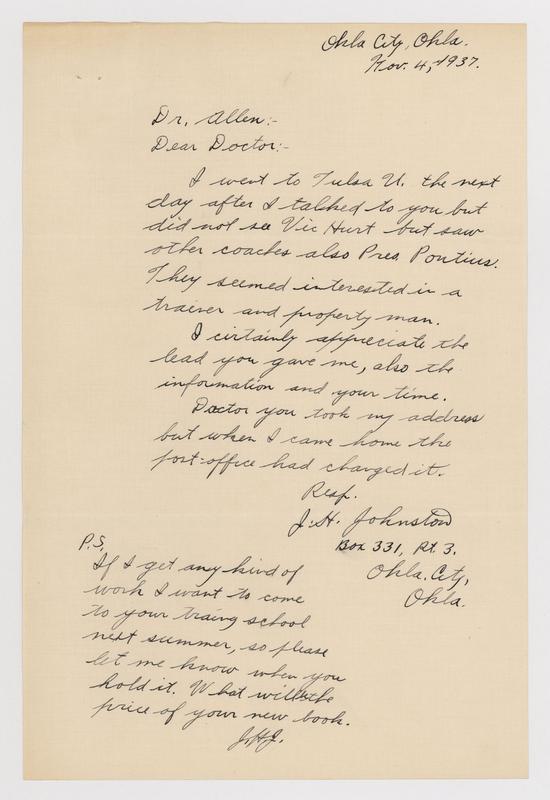 Okla City, Okla.
Nov. 4, 1937.
Dr. Allen:-
Dear Doctor:-
I went to Tulsa U. the next
day after I talked to you but
did not see Vic Hurt but saw
other coaches also Pres. Pontius.
They seemed interested in a
trainer and property man.
I cirtainly appreciate the
lead you gave me, also the
information and your time.
Doctor you took my address
but when I came home the
post-office had changed it.
Resp.
J.H. Johnston
Box 331, Rt. 3.
Okla. City,
Okla.
P.S.
If I get any kind of
work I want to come
to your traing school
next summer, so please
let me know when you
hold it. What will be the
price of your new book.
J.H.J.